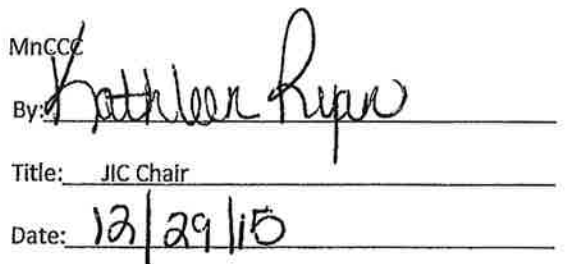 MnCCC
By: Kathleen Ryan
Title: JIC Chair
Date: 12/29/15